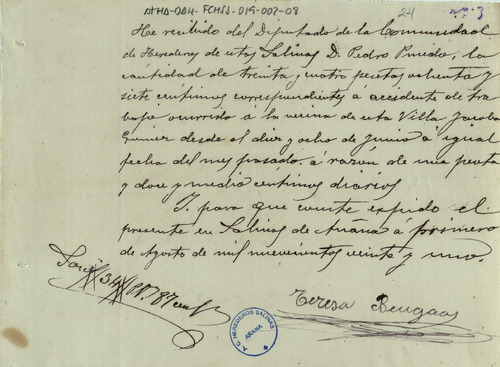 ATHA-DAH-FCHSA-019-002-08
24
nº 3
He recibido del Diputado de la Comunidad
de Herederos de estas Salinas D. Pedro Pinedo, la
cantidad de treinta y cuatro pesetas ochenta y
siete centimos correspondientes á accidente de tra
bajo ocurrido á la vecina de esta Villa Jacoba
desde el diez y ocho de Junio á igual
fecha del mes pasado á razón de una peseta
y doce y medio centimos diarios
Y para que conste expido el
presente en Salinas de Añana á primero
de Agosto de mil novecientos veinte y uno.
Son 34 Pts. 87 cents
Teresa
A.C. HEREDEROS SALINAS
AÑANA